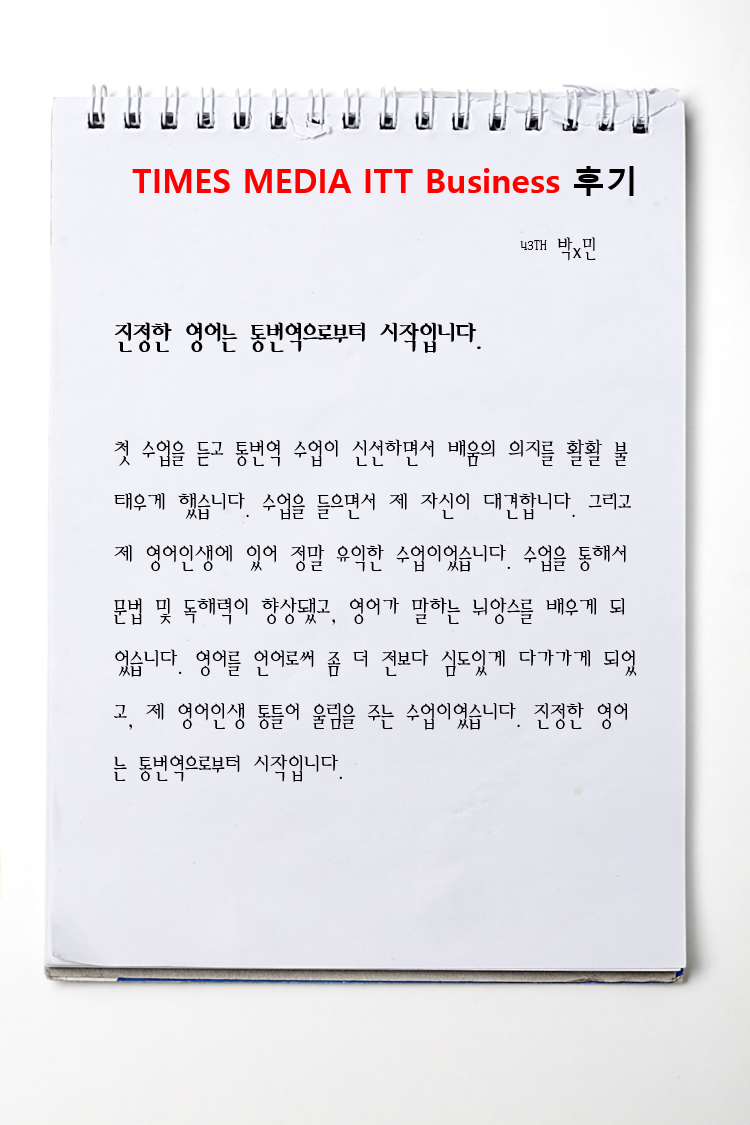 TIMES MEDIA ITT Business 후기
43TH 박x민
진정한 영어는 통번역으로부터 시작입니다.
첫 수업을 듣고 통번역 수업이 신선하면서 배움의 의지를 활활 불
태우게 했습니다. 수업을 들으면서 제 자신이 대견합니다. 그리고
제 영어인생에 있어 정말 유익한 수업이었습니다. 수업을 통해서
문법 및 독해력이 향상됐고, 영어가 말하는 뉘앙스를 배우게 되
었습니다. 영어를 언어로써 좀 더 전보다 심도있게 다가가게 되었
고, 제 영어인생 통틀어 울림을 주는 수업이였습니다. 진정한 영어
는 통번역으로부터 시작입니다.